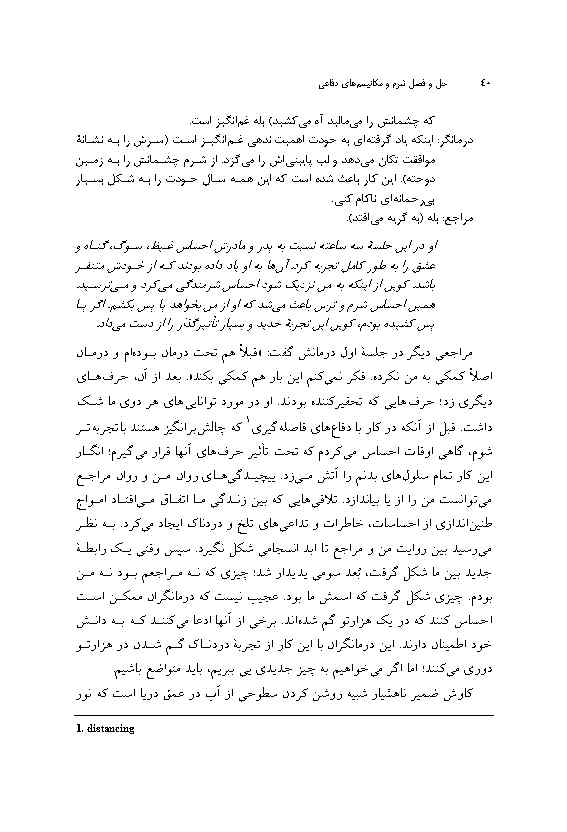 ۴۰ حل و فصل شرم و مکانیسم‌های دفاعی
که چشمانش را می‌مالید آه می‌کشید) بله غم‌انگیز است.
درمانگر: اینکه یاد گرفته‌ای به خودت اهمیت ندهی غـم‌انگیـز اسـت (سـرش را بـه نشـانهٔ
موافقت تکان می‌دهد و لب پایینی‌اش را می‌گزد. از شـرم چشـمانش را بـه زمـین
دوخته). این کار باعث شده است که این همـه سـال خـودت را بـه شـکل بسـیار
بی‌رحمانه‌ای ناکام کنی.
مراجع: بله (به گریه می‌افتد).
او در این جلسهٔ سه ساعته نسبت به پدر و مادرش احساس غـیظ، سـوگ، گنـاه و
عشق را به طور کامل تجربه کرد. آن‌ها به او یاد داده بودند کـه از خـودش متنفـر
باشد. کوین از اینکه به من نزدیک شود احساس شرمندگی می‌کرد و مـی‌ترسـید.
همین احساس شرم و ترس باعث می‌شد که او از من بخواهد پس بکشم. اگر پـا
پس کشیده بودم، کوین این تجربهٔ جدید و بسیار تأثیرگذار را از دست می‌داد.
مراجعی دیگر در جلسهٔ اول درمانش گفت: «قبلاً هم تحت درمان بـوده‌ام و درمـان
اصلاً کمکی به من نکرده. فکر نمی‌کنم این بار هم کمکی بکند». بعد از آن، حرف‌هـای
دیگری زد؛ حرف‌هایی که تحقیرکننده بودند. او در مورد توانایی‌های هر دوی ما شـک
داشت. قبل از آنکه در کار با دفاع‌های فاصله‌گیری۱ که چالش‌برانگیز هستند باتجربه‌تـر
شوم، گاهی اوقات احساس می‌کردم که تحت تأثیر حرف‌های آنها قرار می‌گیرم؛ انگـار
این کار تمام سلول‌های بدنم را آتش مـی‌زد. پیچیـدگی‌هـای روان مـن و روان مراجـع
می‌توانست من را از پا بیاندازد. تلاقی‌هایی که بین زنـدگی مـا اتفـاق مـی‌افتـاد امـواج
طنین‌اندازی از احساسات، خاطرات و تداعی‌های تلخ و دردناک ایجاد می‌کرد. بـه نظـر
می‌رسید بین روایت من و مراجع تا ابد انسجامی شکل نگیرد. سپس وقتی یـک رابطـهٔ
جدید بین ما شکل گرفت، بُعد سومی پدیدار شد؛ چیزی که نـه مـراجعم بـود نـه مـن
بودم. چیزی شکل گرفت که اسمش ما بود. عجیب نیست که درمانگران ممکـن اسـت
احساس کنند که در یک هزارتو گم شده‌اند. برخی از آنها ادعا می‌کننـد کـه بـه دانـش
خود اطمینان دارند. این درمانگران با این کار از تجربهٔ دردنـاک گـم شـدن در هزارتـو
دوری می‌کنند؛ اما اگر می‌خواهیم به چیز جدیدی پی ببریم، باید متواضع باشیم.
کاوش ضمیر ناهشیار شبیه روشن کردن سطوحی از آب در عمق دریا است که نور
1. distancing